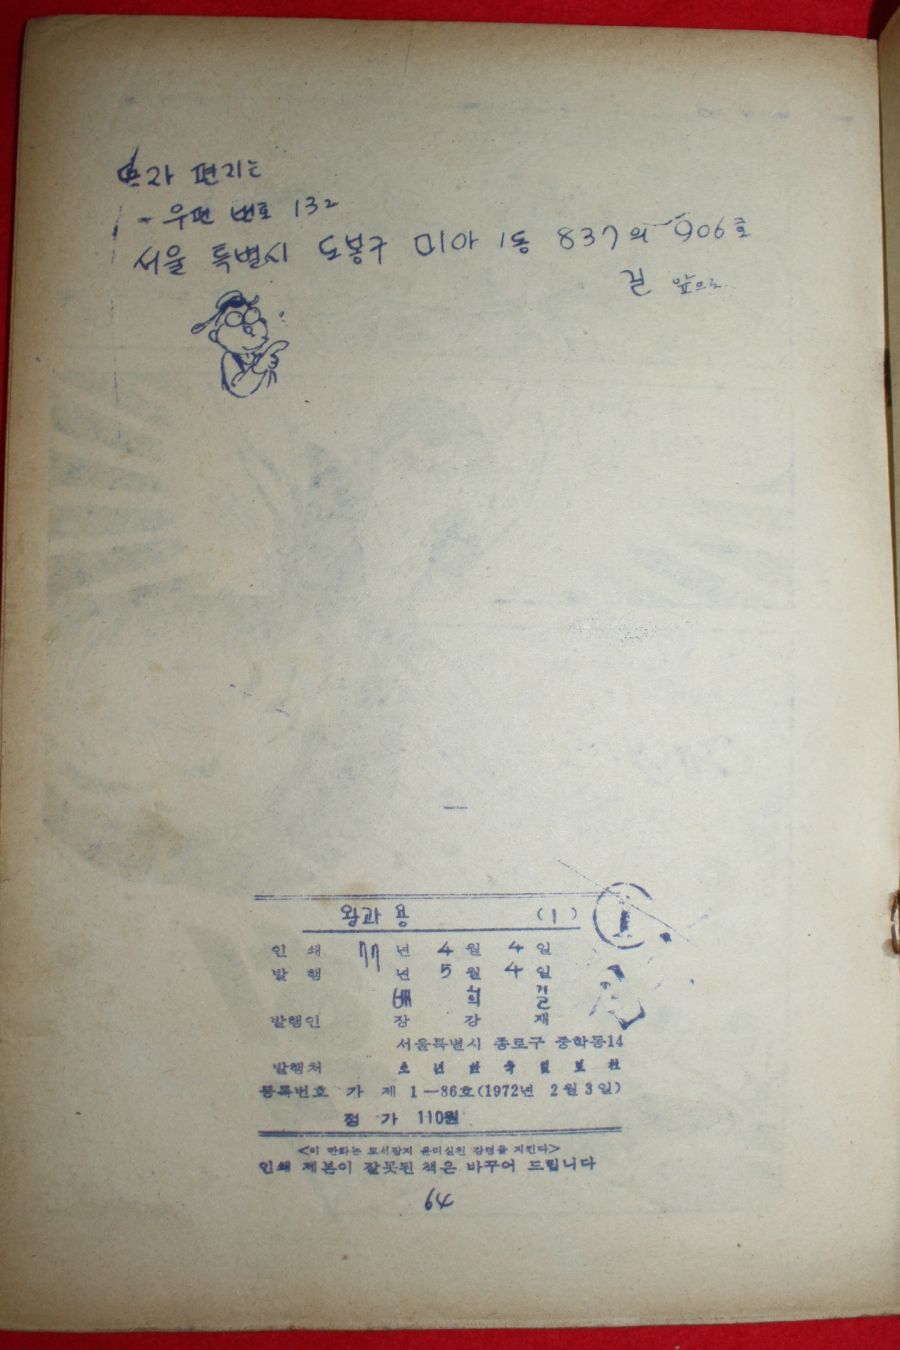 편지는
- 우편 번호 132
서울 특별시 도봉구 미아 1동 837의 906호
길 앞으로
왕과 용 (1)
1
인 쇄 77년 4월 4일
발 행 년 5월 4일
석 길
발행인 장 강 재
서울특별시 종로구 중학동14
발행처 소 년 한 국 일 보 사
등록번호 가 제 1—86호(1972년 2월3일)
정 가 110원
<이 만화는 도서잡지 윤리실천 강령을 지킨다>
인쇄 제본이 잘못된 책은 바꾸어 드립니다
64